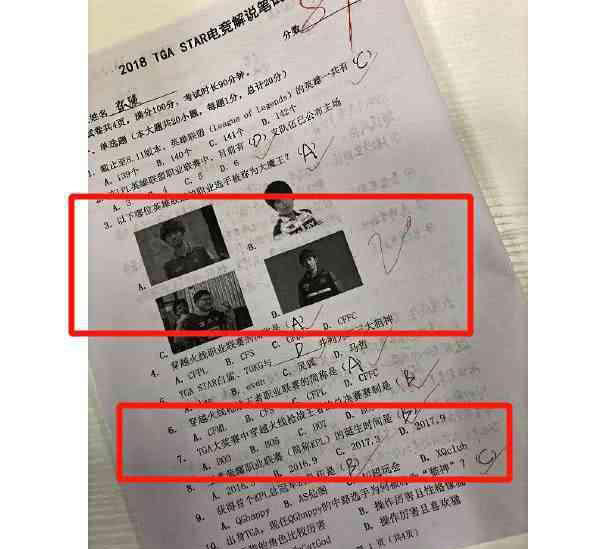 2018 TGA STAR电竞解说笔试
分数
姓名
试卷共4页,满分100分,考试时长90分钟。
一、单选题(本大题共20小题,每题1分,总计20分)
1. 截止至8.11版本,英雄联盟(League of Legends)的英雄一共有(C)
A. 139个 B. 140个 C. 141个 D. 142个
LPL英雄联盟职业联赛中,目前有(D)支队伍已公布主场
A. 3 4 C. 5 D. 6
3. 以下哪位英雄联盟职业选手被称为大魔王?(A)
A. B.
C. D.
4. 穿越火线职业联赛的简称是(A)
A. CFPL B. CFS C. CFPL D. CFFC
TGA STAR白鲨、70KG与 D 并称为 三大狙神
B. even C. 灵魂 D. 马哲
6. 穿越火线 者职业联赛的简称是(A)
A. CFML B. CFS C. CFPL D. CFFC
7. TGA大奖赛中穿越火线枪战王者的总决赛赛制是(B)
A. BO3 B. BO5 C. BO7
8. 荣耀职业联赛(简称KPL)的诞生时间是(B)
A. 2016.3 B. 2016.9 C. 2017.3 D. 2017.9
9. 获得首个KPL总冠军的 是(B)
A. QGhappy B. AS仙阁 D. XQclub
10. 出身TGA,现任QGhappy的中路选手为何被称为“精神”?(C)
的角色比较厉害 B. 操作厉害且性格像猫
D. 操作厉害且喜欢猫
(共4页)